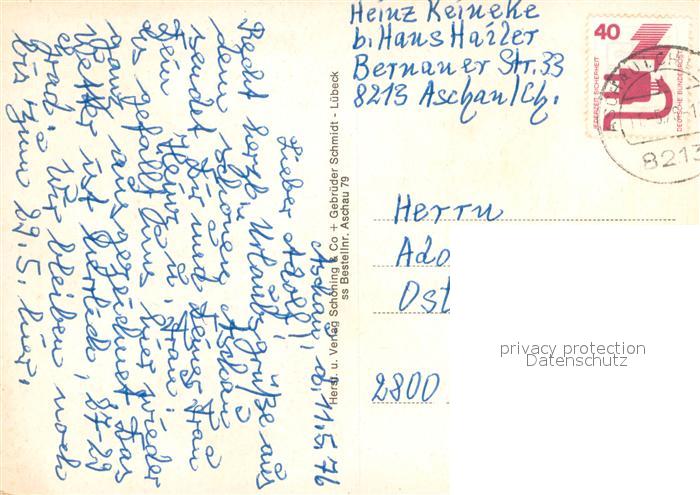 Heinz Reineke
b. Hans Haller
Bernauer Str. 33
8213 Aschau/Ch.
40
JEDERZEIT SICHERHEIT
DEUTSCHE BUNDESPOST
8213
Aschau, d. 11.5.76
Lieber Adolf!
Recht herzl. Urlaubsgrüße aus
dem schönen Aschau
sendet Dir und Deiner Frau
Dein Heinz u. Frau.
Es gefällt uns hier wieder
ganz ausgezeichnet. Das
Wetter ist herrlich,
Grad. Wir bleiben noch
bis zum 29.5. hier.
Herst. u. Verlag Schöning & Co + Gebrüder Schmidt - Lübeck
ss Bestellnr. Aschau 79
Herrn
Ado
Ost
2800
privacy protection
Datenschutz